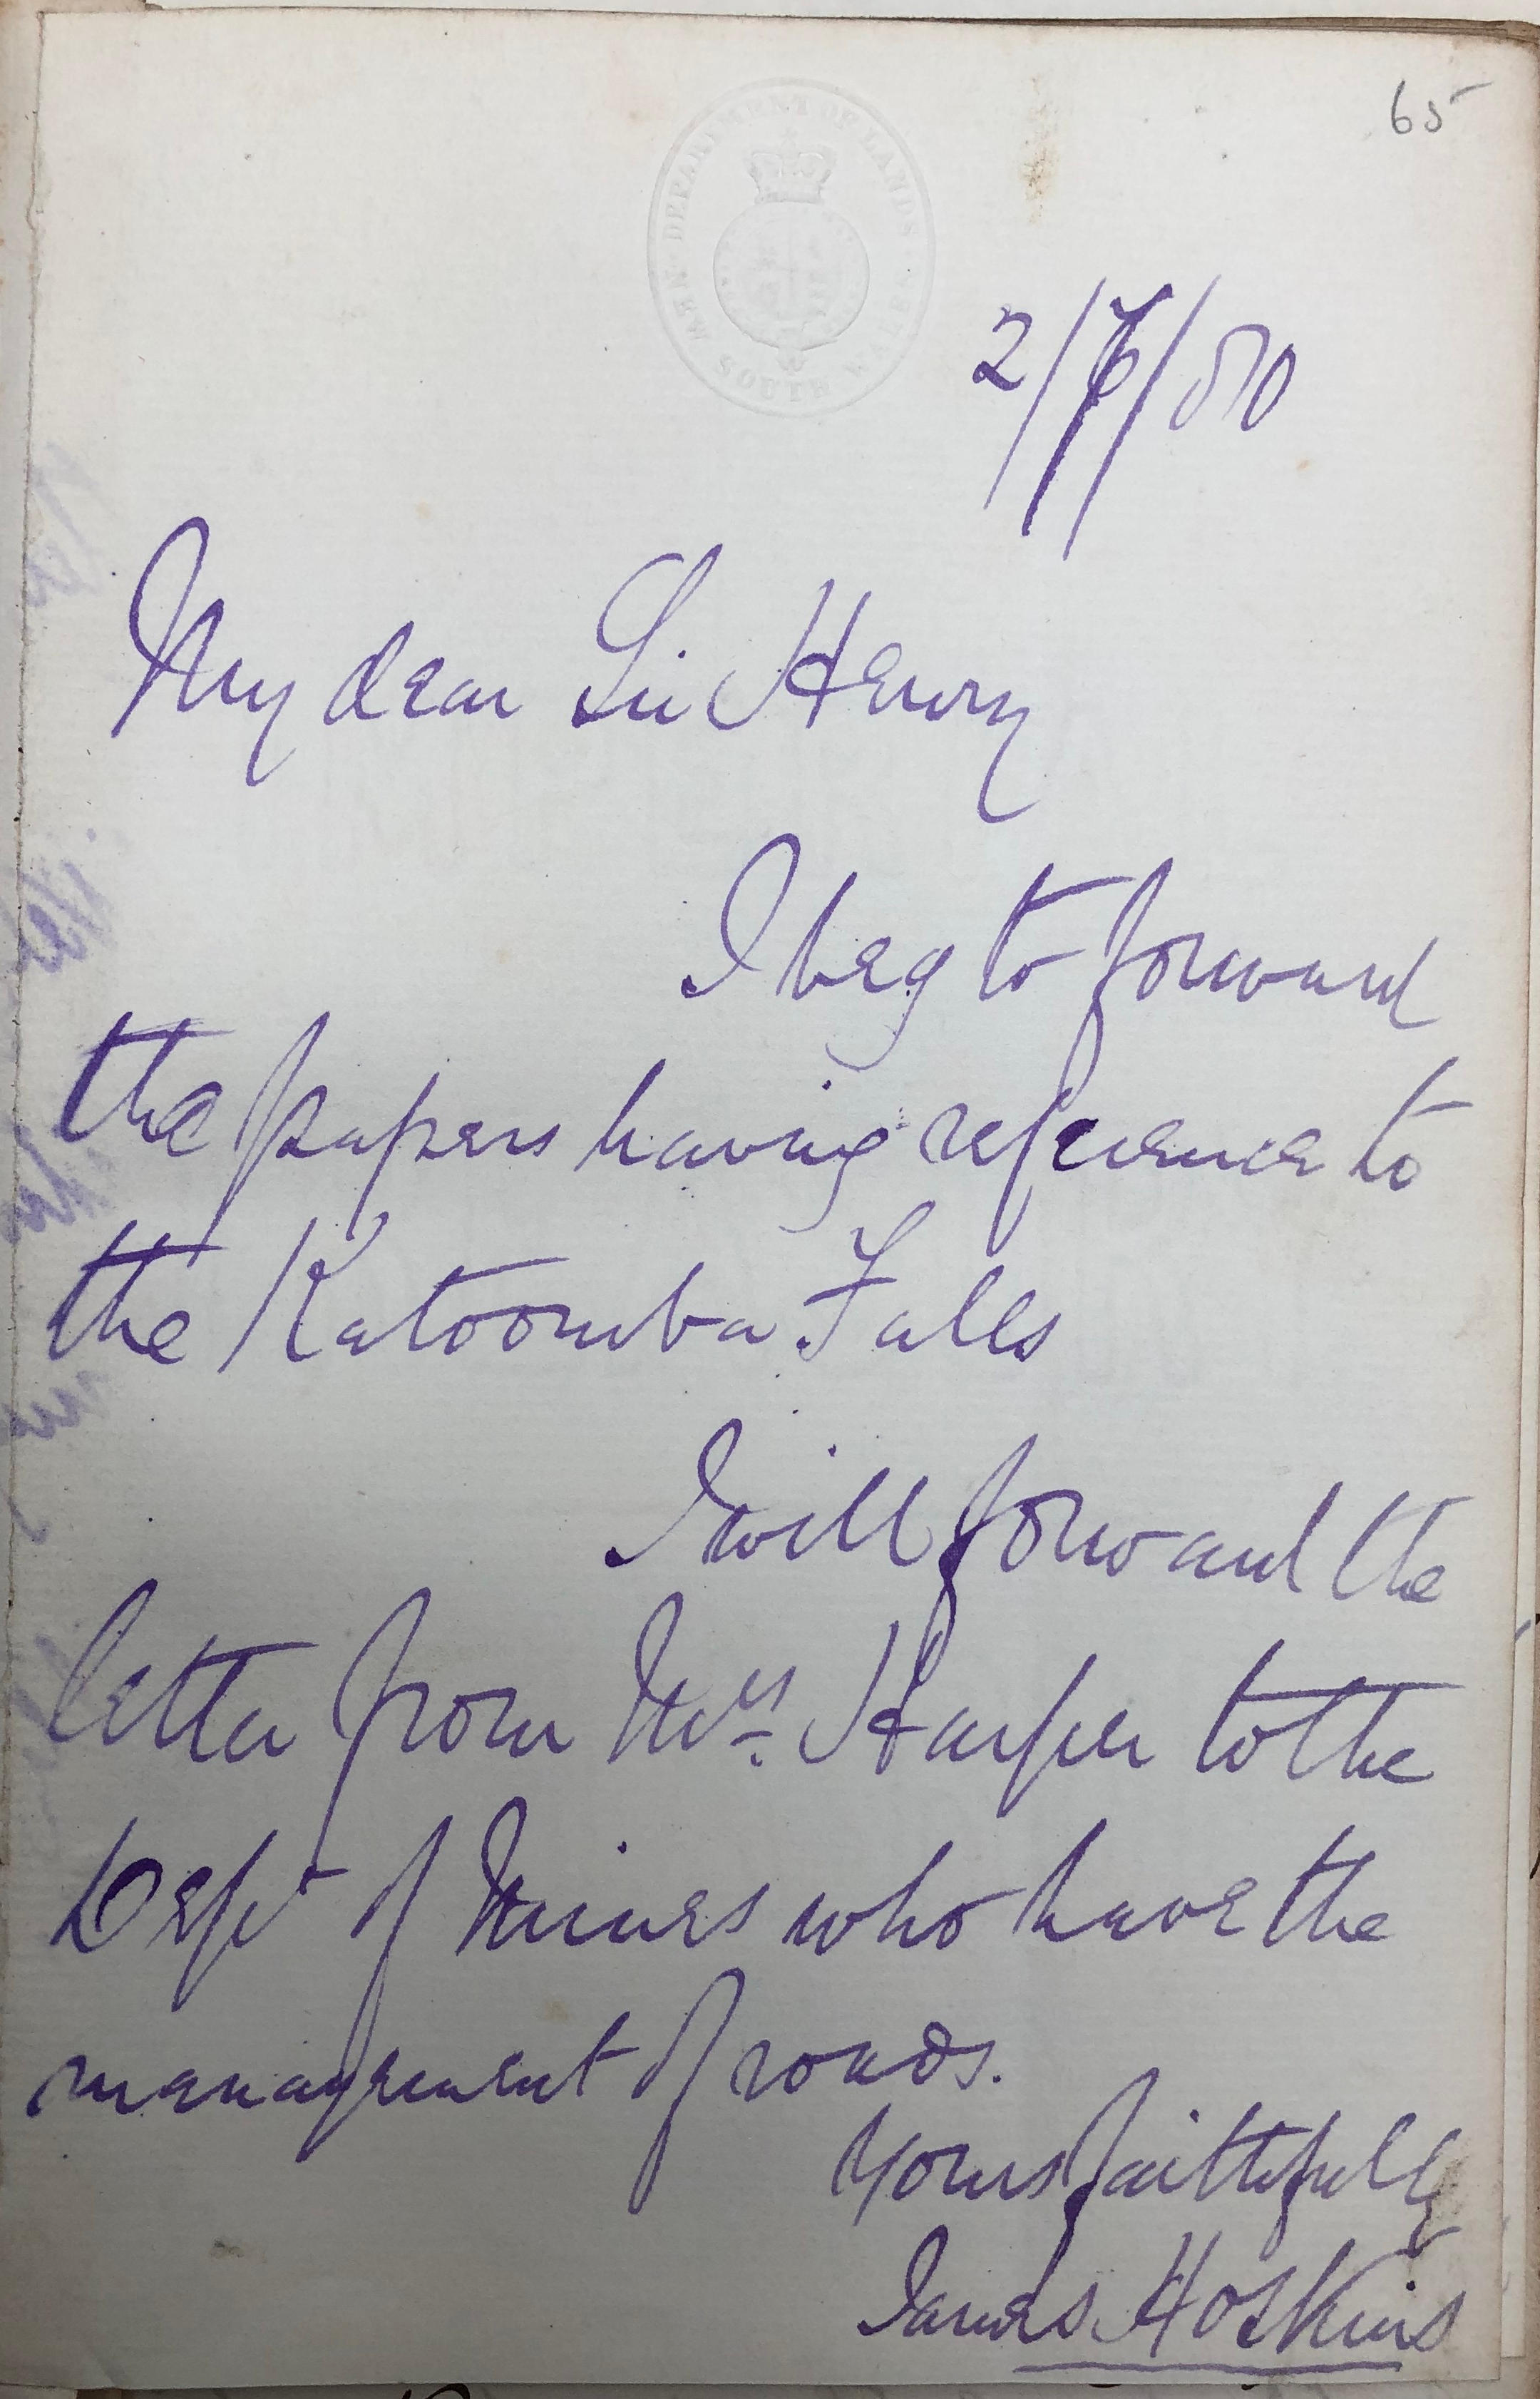 65
DEPARTMENT OF LANDS
NEW SOUTH WALES
2/7/80
My dear Sir Henry
I beg to forward
the papers having reference to
the Katoomba Falls
I will forward the
letter from Mrs. Harper to the
Dept of Mines who have the
management of roads.
Yours faithfully
James Hoskins